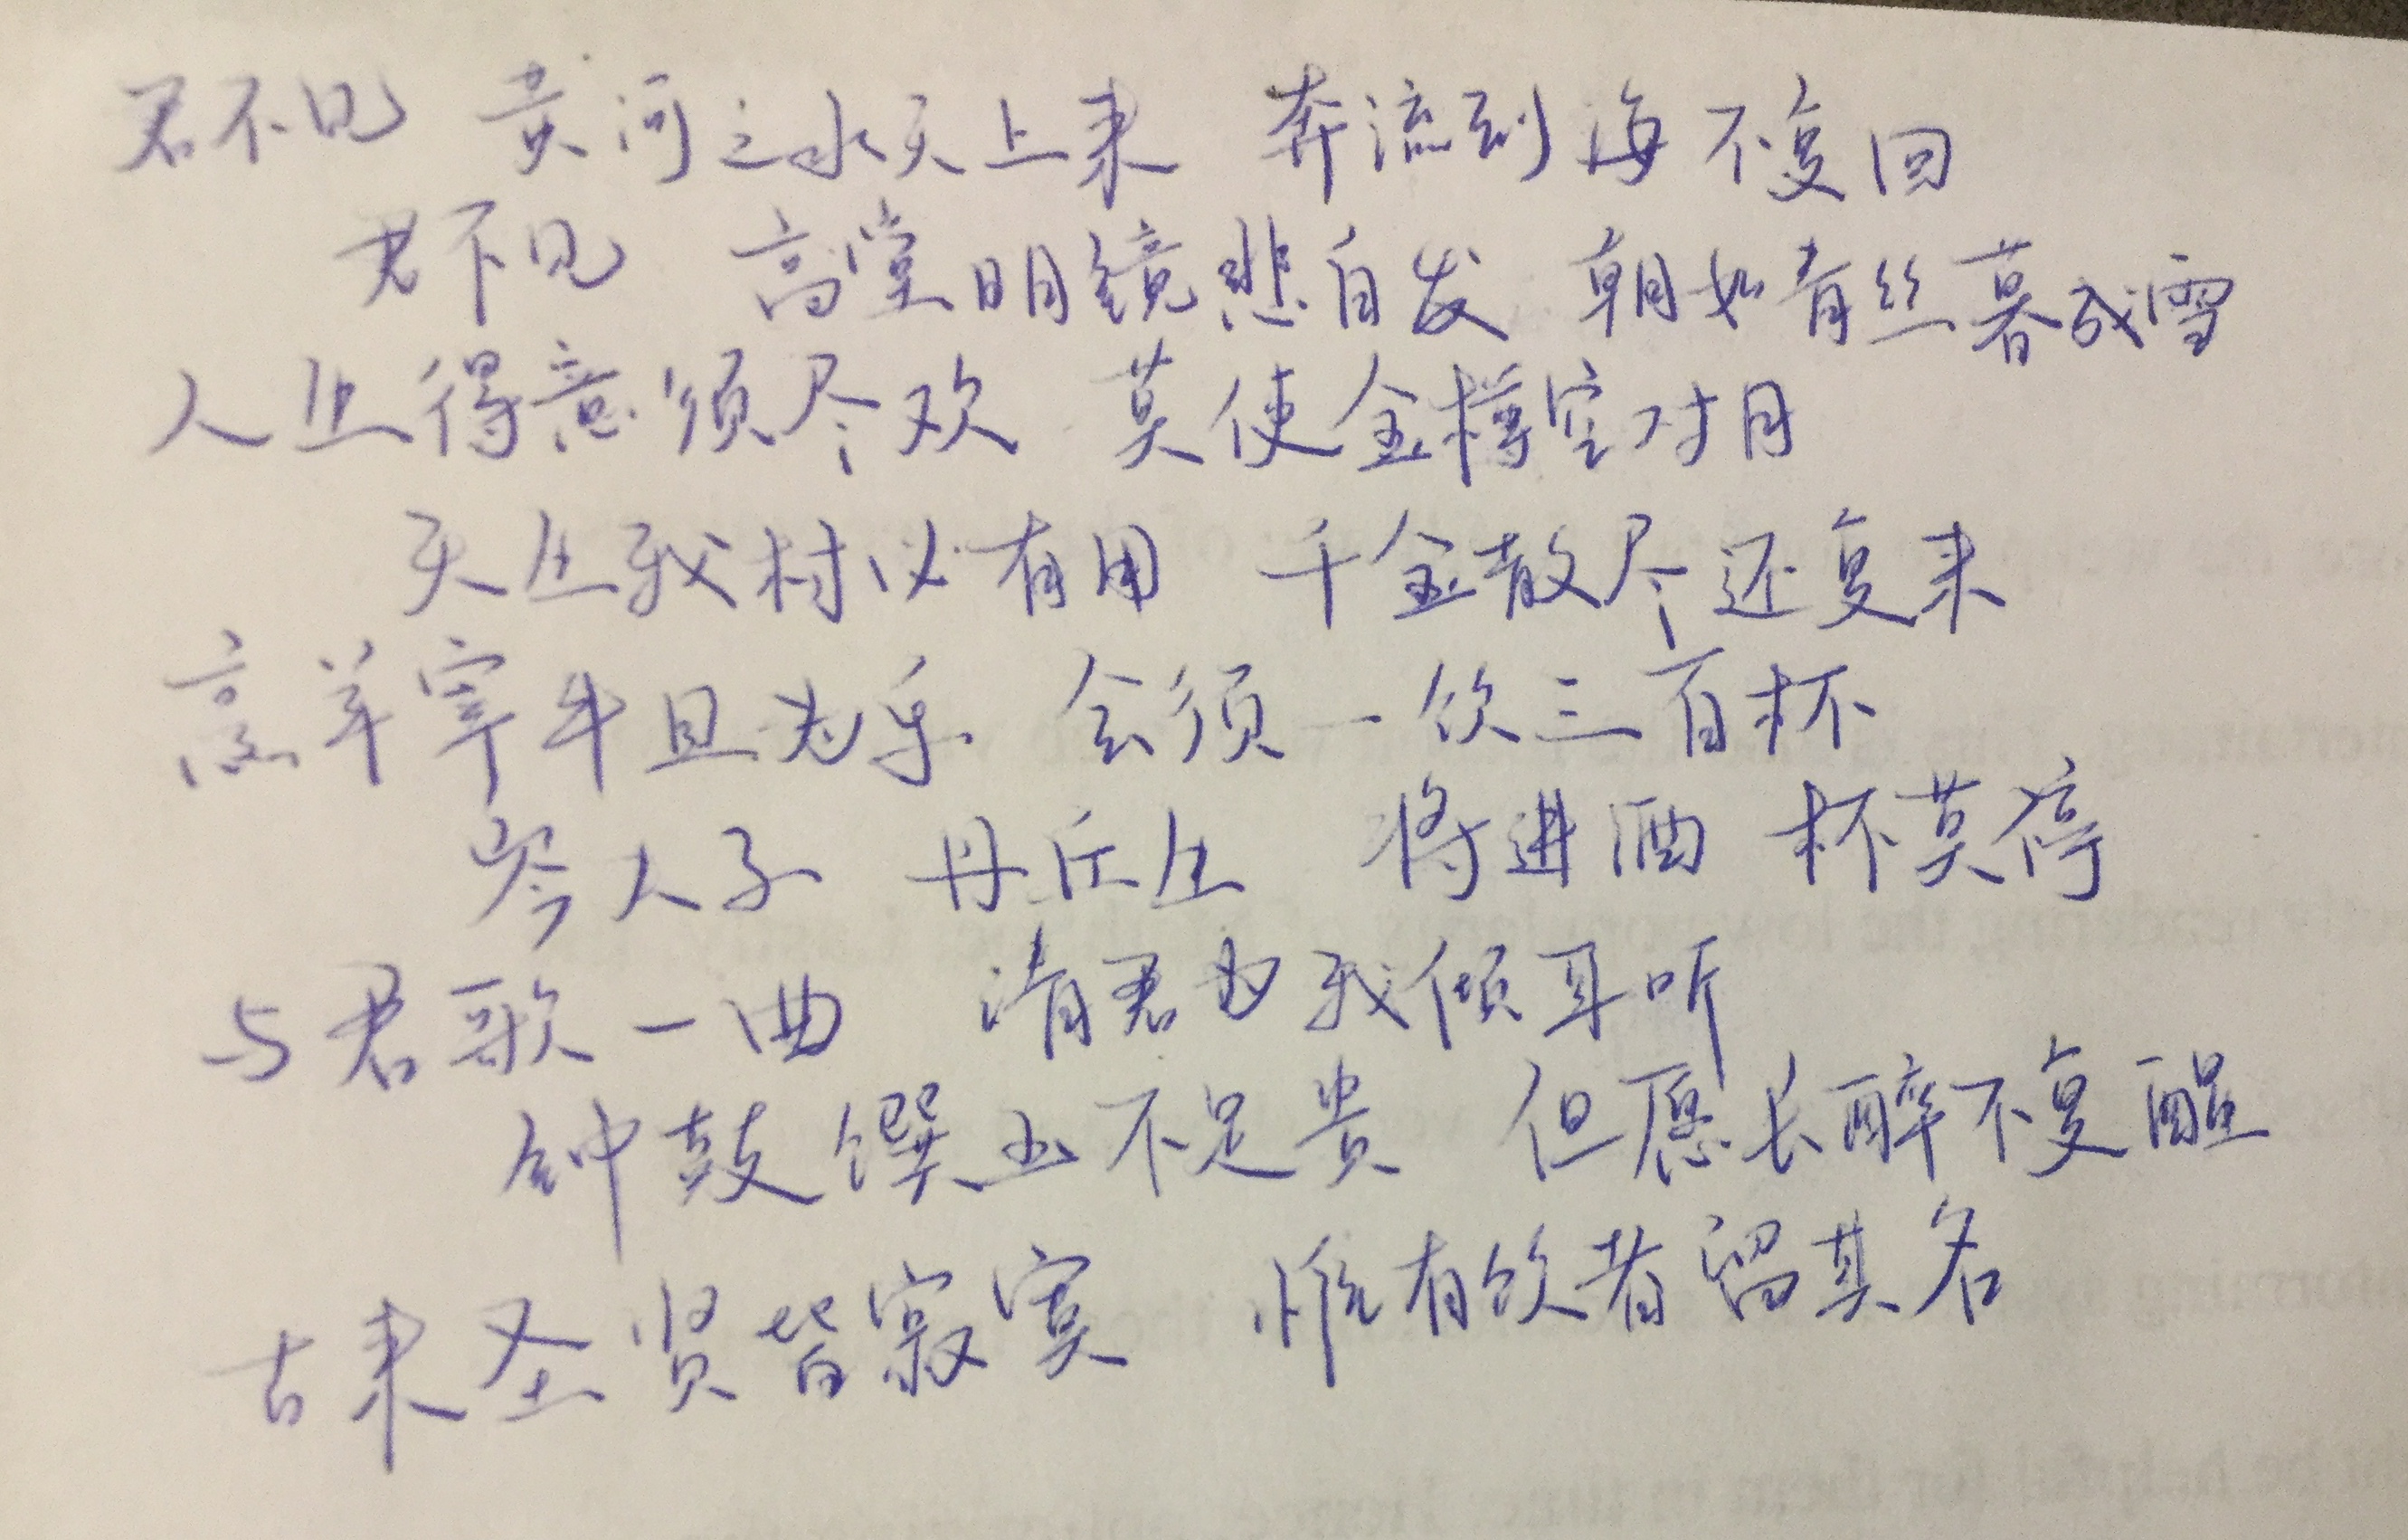 君不见 黄河之水天上来 奔流到海不复回
君不见 高堂明镜悲白发 朝如青丝暮成雪
人生得意须尽欢 莫使金樽空对月
天生我材必有用 千金散尽还复来
烹羊宰牛且为乐 会须一饮三百杯
岑夫子 丹丘生 将进酒 杯莫停
与君歌一曲 请君为我倾耳听
钟鼓馔玉不足贵 但愿长醉不复醒
古来圣贤皆寂寞 惟有饮者留其名